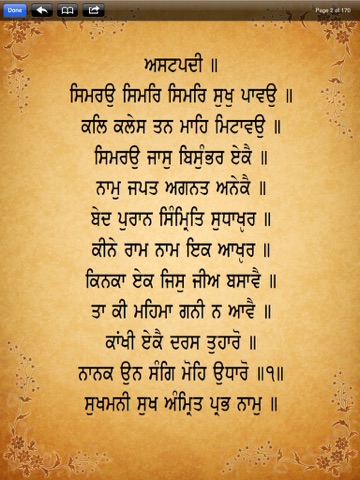 Done
Page 2 of 170
ਅਸਟਪਦੀ ॥
ਸਿਮਰਉ ਸਿਮਰਿ ਸਿਮਰਿ ਸੁਖੁ ਪਾਵਉ ॥
ਕਲਿ ਕਲੇਸ ਤਨ ਮਾਹਿ ਮਿਟਾਵਉ ॥
ਸਿਮਰਉ ਜਾਸੁ ਬਿਸੁੰਭਰ ਏਕੈ ॥
ਨਾਮੁ ਜਪਤ ਅਗਨਤ ਅਨੇਕੈ ॥
ਬੇਦ ਪੁਰਾਨ ਸਿੰਮ੍ਰਿਤਿ ਸੁਧਾਖੵਰ ॥
ਕੀਨੇ ਰਾਮ ਨਾਮ ਇਕ ਆਖੵਰ ॥
ਕਿਨਕਾ ਏਕ ਜਿਸੁ ਜੀਅ ਬਸਾਵੈ ॥
ਤਾ ਕੀ ਮਹਿਮਾ ਗਨੀ ਨ ਆਵੈ ॥
ਕਾਂਖੀ ਏਕੈ ਦਰਸ ਤੁਹਾਰੋ ॥
ਨਾਨਕ ਉਨ ਸੰਗਿ ਮੋਹਿ ਉਧਾਰੋ ॥੧॥
ਸੁਖਮਨੀ ਸੁਖ ਅੰਮ੍ਰਿਤ ਪ੍ਰਭ ਨਾਮੁ ॥